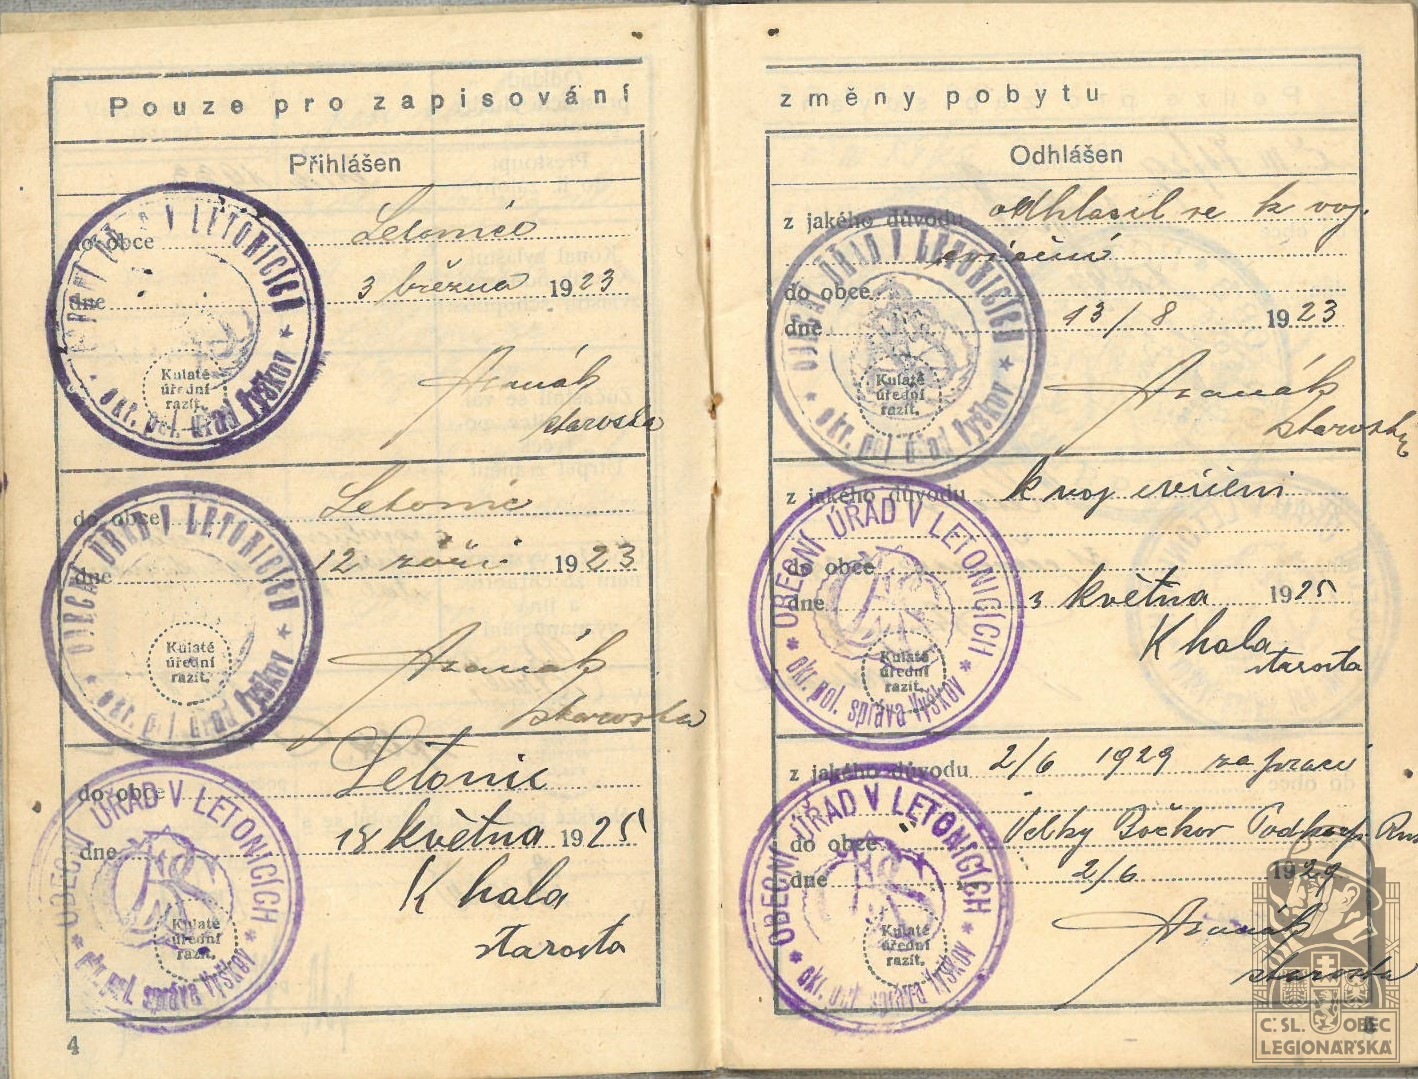 Pouze pro zapisování
Přihlášen
do obce Letonice
dne 3 března 1923
Kulaté
úřední
razít.
OBECNÍ ÚŘAD V LETONICÍCH
* okr. pol. úřad Vyškov *
starosta
do obce Letonic
dne 12 září 1923
Kulaté
úřední
razít.
OBECNÍ ÚŘAD V LETONICÍCH
* okr. pol. úřad Vyškov *
starosta
do obce Letonic
dne 18 května 1925
Kulaté
úřední
razít.
OBECNÍ ÚŘAD V LETONICÍCH
* okr. pol. správa Vyškov *
K hala
starosta
4
změny pobytu
Odhlášen
z jakého důvodu odhlásil se k voj.
cvičení
do obce
dne 13/8 1923
Kulaté
úřední
razít.
OBECNÍ ÚŘAD V LETONICÍCH
* okr. pol. úřad Vyškov *
starosta
z jakého důvodu k voj cvičení
do obce
dne 3 května 1925
Kulaté
úřední
razít.
OBECNÍ ÚŘAD V LETONICÍCH
* okr. pol. správa Vyškov *
K hala
starosta
z jakého důvodu 2/6 1929 za prací
do obce Velký Bočkov Podkarp. Rus
dne 2/6 1929
Kulaté
úřední
razít.
OBECNÍ ÚŘAD V LETONICÍCH
* okr. pol. správa Vyškov *
starosta
Č.SL. OBEC
LEGIONÁŘSKÁ